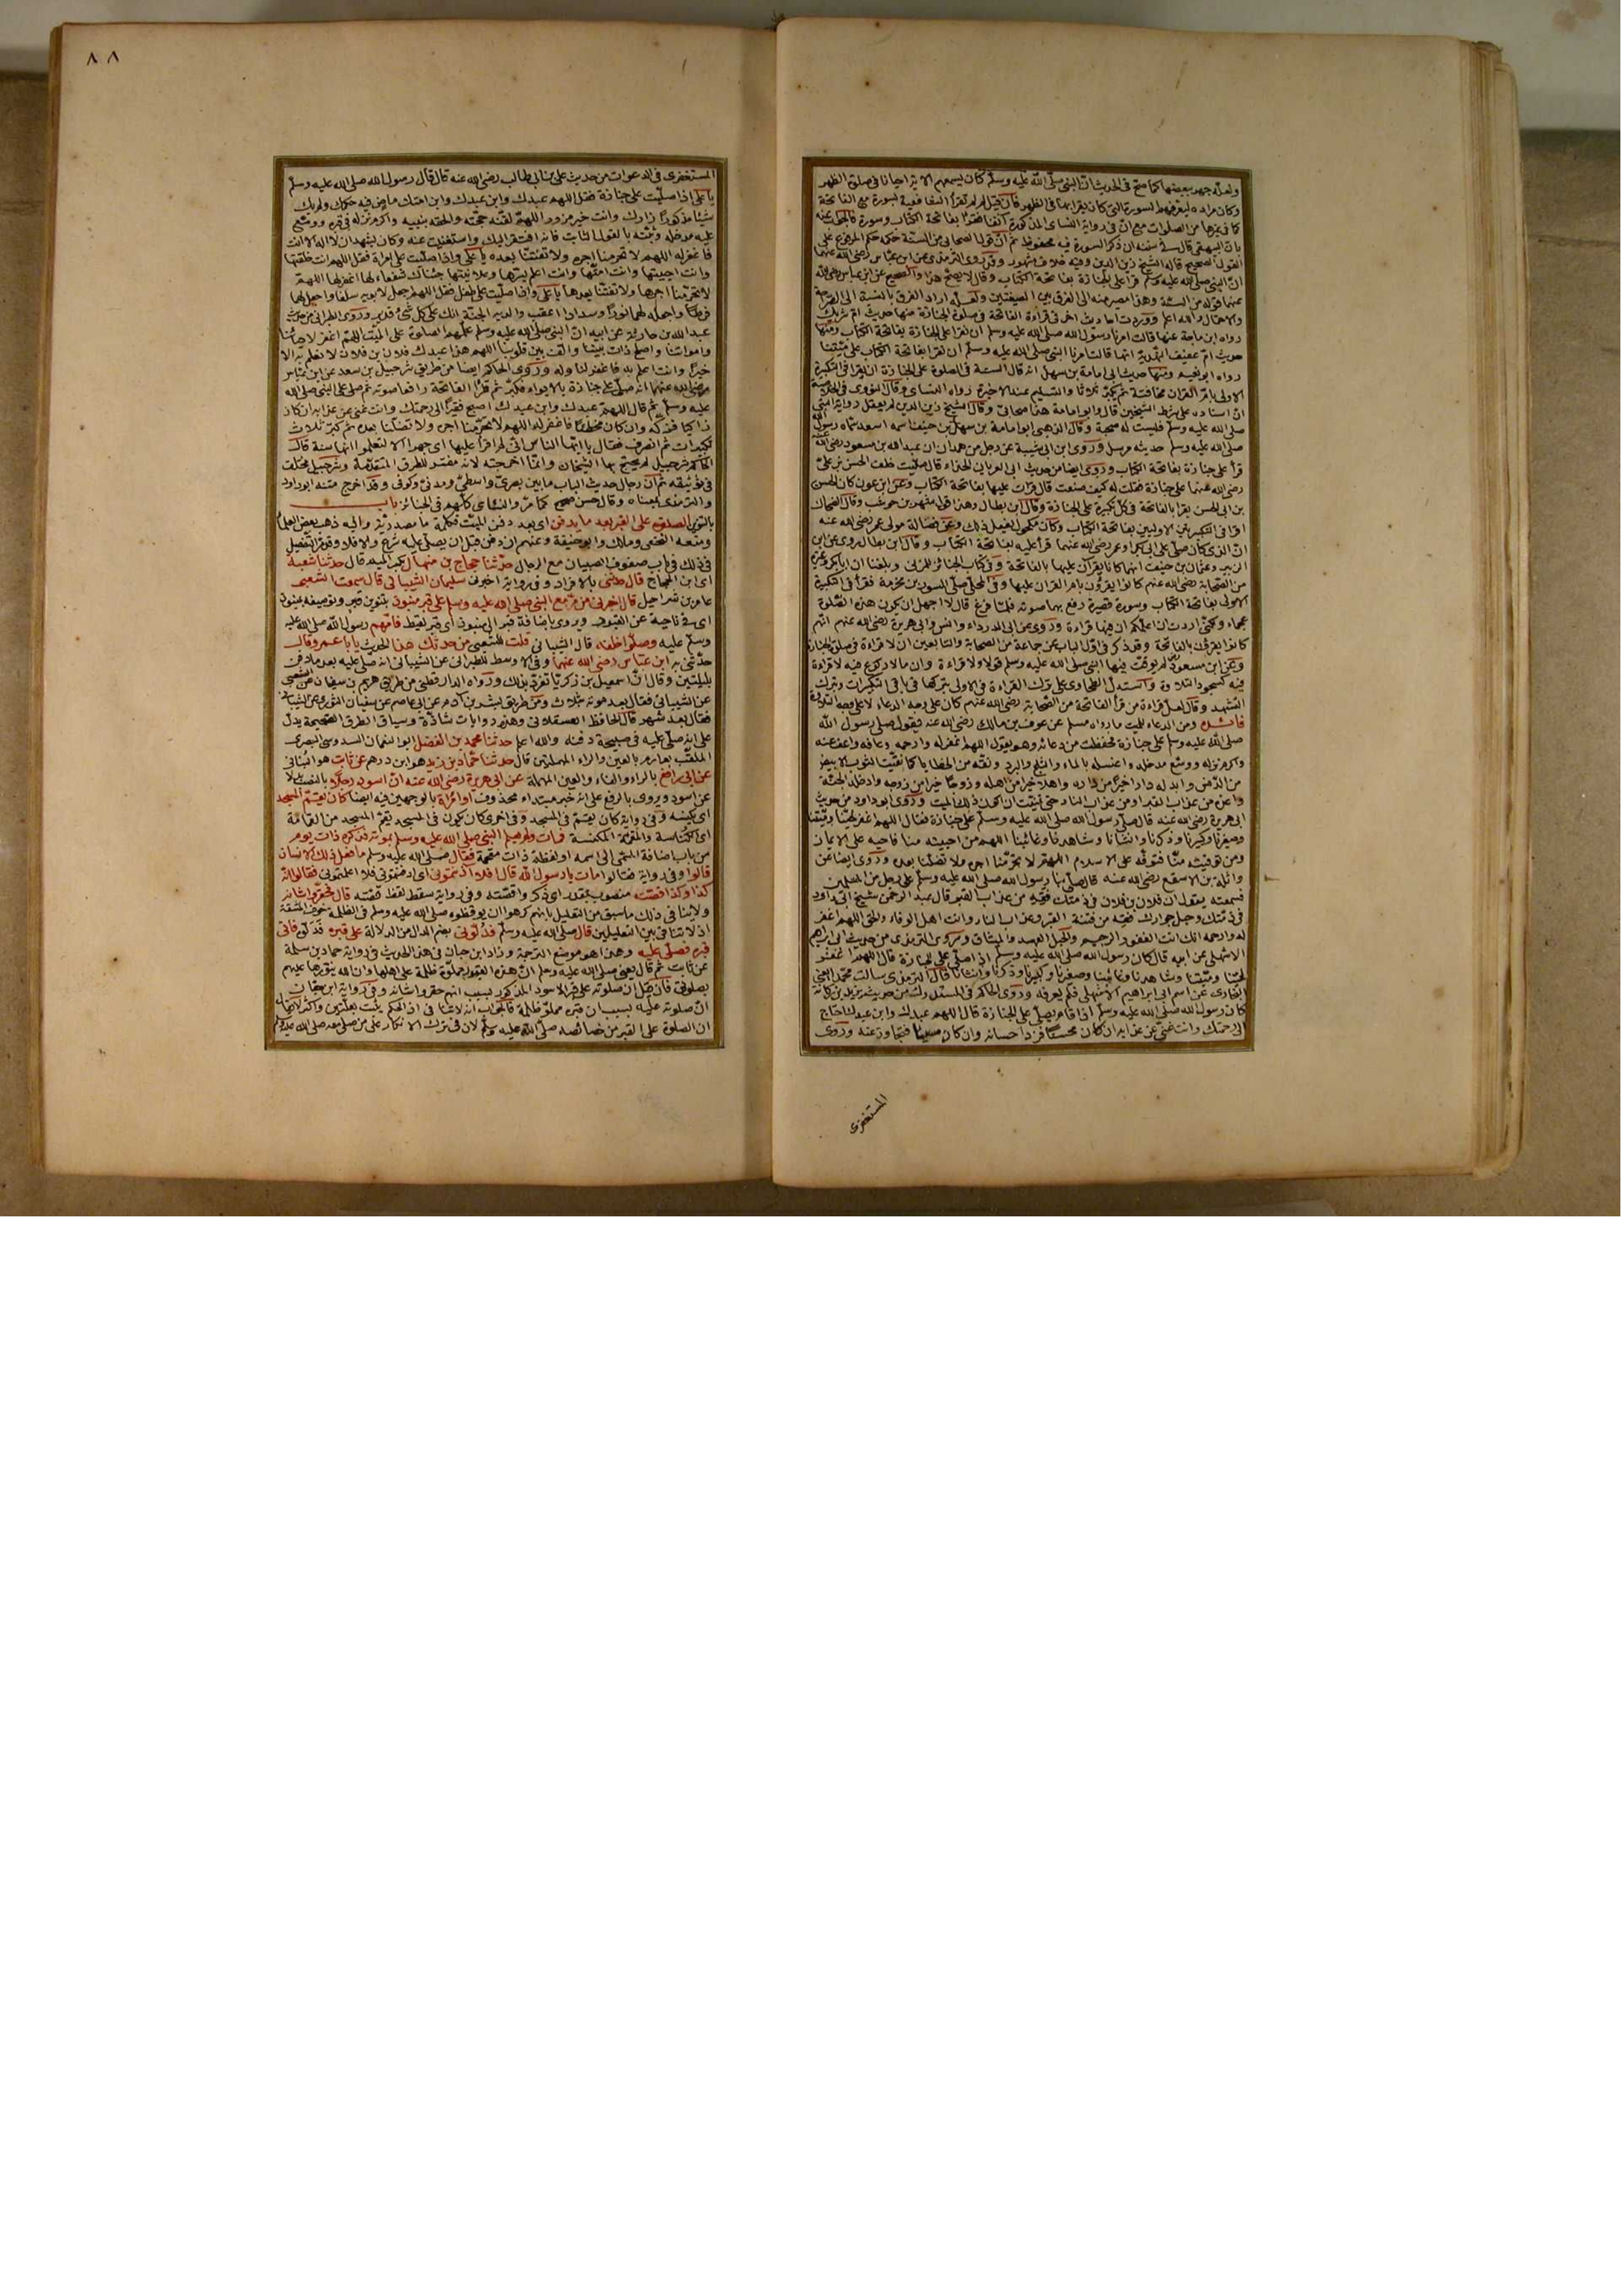 ولعله جهر ببعضها كما صح في الحديث ان النبي صلى الله عليه وسلم كان يسمعهم الآية احيانا في صلوة الظهر
وكان مراده ليعرفهم السورة التي كان يقرأ بها في الظهر فان قيل لم لم تقرأ الشافعية لسورة مع الفاتحة
كما في غيرها من الصلوات مع ان في رواية النسائي المذكورة آنفا فقرأ بفاتحة الكتاب وسورة فالجواب عنه
بان البيهقي قال في سننه ان ذكر السورة فيه غير محفوظ ثم ان قول الصحابي من السنة حكمه حكم المرفوع على
القول الصحيح قاله الشيخ زين الدين وفيه خلاف مشهور وقد روى الترمذي من ابن عباس رضي الله عنهما
ان النبي صلى الله عليه وسلم قرأ على الجنازة بفاتحة الكتاب وقال لا يصح هذا والصحيح عن ابن عباس رضي الله
عنهما قوله من السنة وهذا مصير منه الى الفرق بين الصيغتين ولعله اراد الفرق بالنسبة الى الصراحة
والاحتمال والله اعلم ووردت احاديث اخر في قراءة الفاتحة في صلوة الجنازة منها حديث ام شريك
رواه ابن ماجة عنها قالت امرنا رسول الله صلى الله عليه وسلم ان نقرأ على الجنازة بفاتحة الكتاب ومنها
حديث ام عفيف النهدية انها قالت امرنا النبي صلى الله عليه وسلم ان نقرأ بفاتحة الكتاب على ميتنا
رواه ابو نعيم ومنها حديث ابي امامة بن سهل انه قال السنة في الصلوة على الجنازة ان يقرأ في التكبيرة
الاولى بام القرآن مخافتة ثم يكبر ثلاثا والتسليم عند الآخرة رواه النسائي وقال النووي في الخلاصة
ان اسناده على شرط الشيخين قال وابو امامة هذا صحابي وقال الشيخ زين الدين لم يعقل رواية النبي
صلى الله عليه وسلم فليست له صحبة وقال الذهبي ابو امامة بن سهل بن حنيف اسمه اسعد سماه رسول الله
صلى الله عليه وسلم حديثه مرسل وروى ابن ابي شيبة عن رجل من همدان ان عبد الله بن مسعود رضي الله عنه
قرأ على جنازة بفاتحة الكتاب وروى ايضا من حديث ابي العريان الحذاء قال صليت خلف الحسن بن علي
رضي الله عنهما على جنازة فقلت له كيف صنعت قال قرأت عليها بفاتحة الكتاب وعن ابن عون كان الحسن
بن ابي الحسن يقرأ بالفاتحة في كل تكبيرة على الجنازة وقال ابن بطال وهذا قول شهر بن حوشب وقال الضحاك
اقرأ في التكبيرتين الاوليين بفاتحة الكتاب وكان مكحول يفعل ذلك وعن فضالة مولى عمر رضي الله عنه
ان الذي كان صلى على ابي بكر وعمر رضي الله عنهما قرأ عليه بفاتحة الكتاب وقال ابن بطال روى عن ابن
الزبير وعثمان بن حنيف انهما كانا يقرآن عليها بالفاتحة وفي كتاب الجنائز للمزني وبلغنا ان ابا بكر وغيره
من الصحابة رضي الله عنهم كانوا يقرؤن بام القرآن عليها وفي المحلى صلى المسور بن مخرمة فقرأ في التكبيرة
الاولى بفاتحة الكتاب وسورة قصيرة رفع بهما صوته فلما فرغ قال لا اجهل ان يكون هذه الصلوة
عجماء ولكني اردت ان اعلمكم ان فيها قراءة وروى عن ابي الدرداء وانس وابي هريرة رضي الله عنهم انهم
كانوا يقرؤن بالفاتحة وقد ذكر في اول الباب عن جماعة من الصحابة والتابعين ان لا قراءة في صلوة الجنازة
وعن ابن مسعود لم يوقت فيها النبي صلى الله عليه وسلم قولا ولا قراءة وان ما لا ركوع فيه لا قراءة
فيه كسجود التلاوة واستدل الطحاوي على ترك القراءة في الاولى بتركها في باقي التكبيرات وبترك
التشهد وقال لعل قراءة من قرأ الفاتحة من الصحابة رضي الله عنهم كان على وجه الدعاء لا على وجه التلاوة
فائدة ومن الدعاء للميت ما رواه مسلم عن عوف بن مالك رضي الله عنه يقول صلى رسول الله
صلى الله عليه وسلم على جنازة فحفظت من دعائه وهو يقول اللهم اغفر له وارحمه وعافه واعف عنه
واكرم نزله ووسع مدخله واغسله بالماء والثلج والبرد ونقه من الخطايا كما نقيت الثوب الابيض
من الدنس وابدله دارا خيرا من داره واهلا خيرا من اهله وزوجا خيرا من زوجه وادخله الجنة
واعذه من عذاب القبر او من عذاب النار حتى تمنيت ان اكون ذلك الميت وروى ابو داود من حديث
ابي هريرة رضي الله عنه قال صلى رسول الله صلى الله عليه وسلم على جنازة فقال اللهم اغفر لحينا وميتنا
وصغيرنا وكبيرنا وذكرنا وانثانا وشاهدنا وغائبنا اللهم من احييته منا فاحيه على الايمان
ومن توفيته منا فتوفه على الاسلام اللهم لا تحرمنا اجره ولا تضلنا بعده وروى ايضا عن
واثلة بن الاسقع رضي الله عنه قال صلى بنا رسول الله صلى الله عليه وسلم على رجل من المسلمين
فسمعته يقول ان فلان بن فلان في ذمتك فقه من عذاب القبر قال عبد الرحمن شيخ ابي داود
في ذمتك وحبل جوارك فقه من فتنة القبر وعذاب النار وانت اهل الوفاء والحق اللهم اغفر
له وارحمه انك انت الغفور الرحيم والحبل العهد والميثاق وروى الترمذي من حديث ابي ابراهيم
الاشهلي عن ابيه قال كان رسول الله صلى الله عليه وسلم اذا صلى على الجنازة قال اللهم اغفر
لحينا وميتنا وشاهدنا وغائبنا وصغيرنا وكبيرنا وذكرنا وانثانا قال الترمذي سألت محمدا يعني
البخاري عن اسم ابي ابراهيم الاشهلي فلم يعرفه وروى الحاكم في المستدرك من حديث يزيد بن ركانة
كان رسول الله صلى الله عليه وسلم اذا قام يصلي على الجنازة قال اللهم عبدك وابن عبدك احتاج
الى رحمتك وانت غني عن عذابه ان كان محسنا فزد احسانه وان كان مسيئا فتجاوز عنه وروى
المستغفري
٨٨
المستغفري في الدعوات من حديث علي بن ابي طالب رضي الله عنه قال قال رسول الله صلى الله عليه وسلم
يا علي اذا صليت على جنازة فقل اللهم عبدك وابن عبدك وابن امتك ماض فيه حكمك ولم يك
شيئا مذكورا زارك وانت خير مزور اللهم لقنه حجته والحقه بنبيه واكرم نزله في قبره ووسع
عليه مدخله وثبته بالقول الثابت فانه افتقر اليك واستغنيت عنه وكان يشهد ان لا اله الا انت
فاغفر له اللهم لا تحرمنا اجره ولا تفتنا بعده يا علي واذا صليت على امرأة فقل اللهم انت خلقتها
وانت احييتها وانت امتها وانت اعلم بسرها وعلانيتها جئناك شفعاء لها اغفر لها اللهم
لا تحرمنا اجرها ولا تفتنا بعدها يا علي واذا صليت على طفل فقل اللهم اجعل لابويه سلفا واجعل لهما
فرطا واجعله لهما نورا وسدادا اعقب والديه الجنة انك على كل شئ قدير وروى الطبراني من حديث
عبد الله بن حارثة عن ابيه ان النبي صلى الله عليه وسلم علمهم الصلوة على الميت اللهم اغفر لاحيائنا
وامواتنا واصلح ذات بيننا والف بين قلوبنا اللهم هذا عبدك فلان بن فلان لا نعلم به الا
خيرا وانت اعلم به فاغفر لنا وله وروى الحاكم ايضا من طريق شرحبيل بن سعد عن ابن عباس
رضي الله عنهما انه صلى على جنازة بالابواء فكبر ثم قرأ الفاتحة رافعا صوته ثم صلى على النبي صلى الله
عليه وسلم ثم قال اللهم عبدك وابن عبدك اصبح فقيرا الى رحمتك وانت غني عن عذابه ان كان
زاكيا فزكه وان كان مخطئا فاغفر له اللهم لا تحرمنا اجره ولا تضلنا بعده ثم كبر ثلاث
تكبيرات ثم انصرف فقال يا ايها الناس اني لم اقرأ عليها اي جهرا الا لتعلموا انها سنة قال
الحاكم شرحبيل لم يحتج بها الشيخان وانما اخرجته لانه مفسر للطرق المتقدمة وشرحبيل مختلف
في توثيقه ثم ان رجال حديث الباب ما بين بصري وواسطي ومدني وكوفي وقد اخرج متنه ابو داود
والترمذي بمعناه وقال حسن صحيح كما مر والنسائي كلهم في الجنائز باب
بالتنوين الصلوة على القبر بعد ما يدفن اي بعد دفن الميت فكلمة ما مصدرية واليه ذهب بعض العلماء
ومنعه النخعي ومالك وابو حنيفة وعنهم ان دفن قبل ان يصلى عليه شرع والا فلا وقد مر التفصيل
في ذلك في باب صفوف الصبيان مع الرجال حدثنا حجاج بن منهال بكسر الميم قال حدثنا شعبة
اي ابن الحجاج قال حدثني بالافراد وفي رواية اخبرني سليمان الشيباني قال سمعت الشعبي
عامر بن شراحيل قال اخبرني من مر مع النبي صلى الله عليه وسلم على قبر منبوذ بتنوين قبر وتوصيفه بمنبوذ
اي في ناحية عن القبور ويروى باضافة قبر الى منبوذ اي قبر لقيط فامهم رسول الله صلى الله عليه
وسلم عليه وصلوا خلفه قال الشيباني قلت للشعبي من حدثك هذا الحديث يا ابا عمرو قال
حدثني به ابن عباس رضي الله عنهما وفي الاوسط للطبراني عن الشيباني انه صلى عليه بعد ما دفن
بليلتين وقال ان اسمعيل بن زكريا تفرد بذلك ورواه الدارقطني من طريق هريم بن سفيان عن الشعبي
عن الشيباني فقال بعد موته بثلاث ومن طريق بشر بن آدم عن ابي عاصم عن سفيان الثوري عن الشيباني
فقال بعد شهر قال الحافظ العسقلاني وهذه روايات شاذة وسياق الطرق الصحيحة يدل
على انه صلى عليه في صبيحة دفنه والله اعلم حدثنا محمد بن الفضل ابو النعمان السدوسي البصري
الملقب بعارم بالعين والراء المهملتين قال حدثنا حماد بن زيد هو ابن درهم عن ثابت هو البناني
عن ابي رافع بالراء والفاء والعين المهملة عن ابي هريرة رضي الله عنه ان اسود رجلا بالنصب بدلا
عن اسود ويروى بالرفع على انه خبر مبتداء محذوف او امرأة بالوجهين فيه ايضا كان يقم المسجد
اي يكنسه وفي رواية كان يقم في المسجد وفي اخرى كان يكون في المسجد يقم المسجد من القمامة
اي الكناسة والمقمة المكنسة فمات ولم يعلم النبي صلى الله عليه وسلم بموته فذكره ذات يوم
من باب اضافة المسمى الى اسمه او لفظة ذات مقحمة فقال صلى الله عليه وسلم ما فعل ذلك الانسان
قالوا وفي رواية فقالوا مات يا رسول الله قال افلا آذنتموني اي اعلمتموني فقالوا انه
كذا وكذا قصته منصوب بمقدر اي ذكروا قصته وفي رواية سقط لفظ قصته قال فحقروا شانه
ولا ينافي ذلك ما سبق من التعليل بانهم كرهوا ان يوقظوه صلى الله عليه وسلم في الظلمة خوف المشقة
اذ لا تنافي بين التعليلين قال صلى الله عليه وسلم فدلوني بضم الدال من الدلالة على قبره فدلوه فاتى
قبره فصلى عليه وهذا هو موضع الترجمة وزاد ابن حبان في هذا الحديث في رواية حماد بن سلمة
عن ثابت ثم قال يعني صلى الله عليه وسلم ان هذه القبور مملوة ظلمة على اهلها وان الله ينورها عليهم
بصلوتي فان قيل ان صلوته على قبر الاسود المذكور بسبب انهم حقروا شانه وفي رواية ابن حبان
ان صلوته عليه بسبب ان قبره مملو ظلمة فالجواب انه لا تنافي اذ الحكم يثبت بعلتين واكثر لا يقال
ان الصلوة على القبر من خصائصه صلى الله عليه وسلم لان في ترك الانكار على من صلى معه صلى الله عليه وسلم